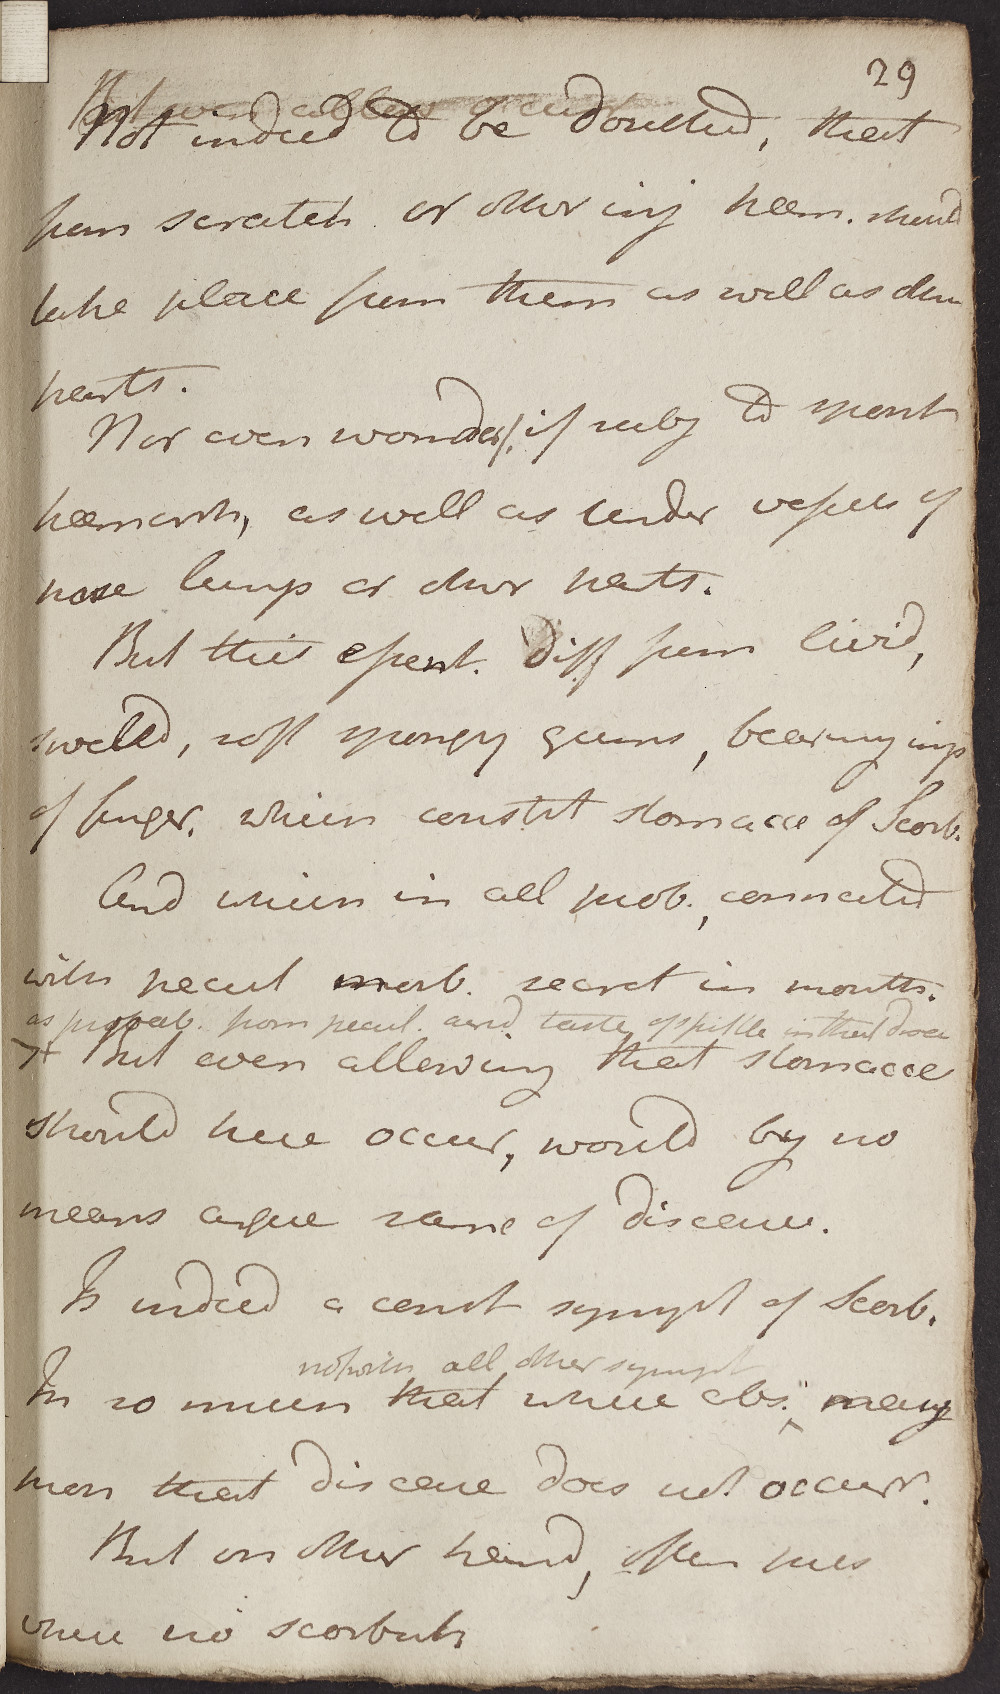 29
Not indeed to be doubted, that
from scratch or other inj hæm. should
take place from them as well as other
parts.
Nor even wonder, if subj to spont
hæmorrh, as well as under vessels of
nose lungs or other parts.
But this essent. diff from livid,
swelld, soft spongy gums, bearing imp
of finger, which constit stomacæ of Scorb.
And which in all prob., connected
with pecul morb. secret in mouth.
as probab. from pecul. acrid. taste of spittle in that disea
+ But even allowing that stomacæ
should here occur, would by no
means argue same of disease.
Is indeed a const sympt of Scorb.
notwith all other sympt
In so much that where abs. many
mon that disease does not occurr.
But on other hand, often pres
where no scorbut